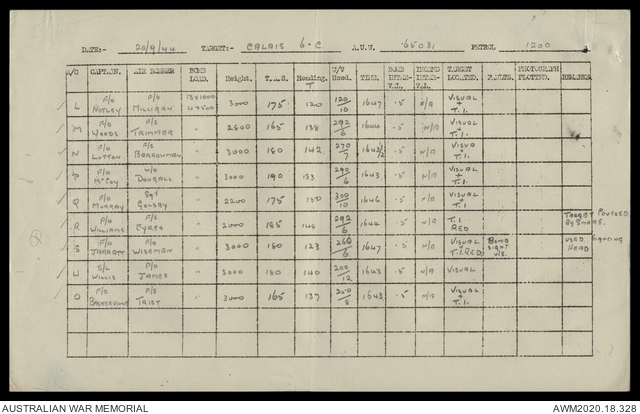 DATE:- 20/9/44 TARGET:- CALAIS 6-C A.U.W. 65031 PETROL 1200
A/C CAPTAIN. AIR BOMBER BOMB LOAD. Height. T.A.S. Heading. T U/V Used. TIME. BOMB INTER-VAL. INCEND INTER-VAL. TARGET LOCATED. RESULTS. PHOTOGRAPH PLOTTING. REMARKS
L F/O NOTLEY F/O MILLIGAN 13x1000 4x500 3000 175 120 120/10 1647 .5 N/A VISUAL + T.I.
M F/O WOODS F/S TRIMMER " 2800 165 138 292/6 1644 .5 N/A VISUAL + T.I.
N F/O LOTTON F/S BARROWMAN " 3000 180 142 270/7 1643 1/2 .5 N/A VISUAL + T.I.
P F/O McCOY W/O DOUGALL " 3000 190 133 290/6 1643 .5 N/A VISUAL + T.I.
Q F/O MURRAY Sgt GOLSBY " 2200 175 150 300/10 1646 .5 N/A VISUAL + T.I.
R F/O WILLIAMS F/S EYRES " 2000 185 292/6 1644 .5 N/A T.I. RED TARGET COVERED BY SMOKE.
S F/O JARRETT F/S WISEMAN " 3000 180 123 260/6 1647 .5 N/A VISUAL + T.I. RED BOMB SIGHT U/S. USED SIGHTING HEAD
U S/L WILLIS P/O JAMES " 3000 180 140 200/12 1643 .5 N/A VISUAL
O F/O BASKERVILLE F/S TRIST " 3000 165 137 250/8 1643 .5 N/A VISUAL + T.I.
AUSTRALIAN WAR MEMORIAL AWM2020.18.328